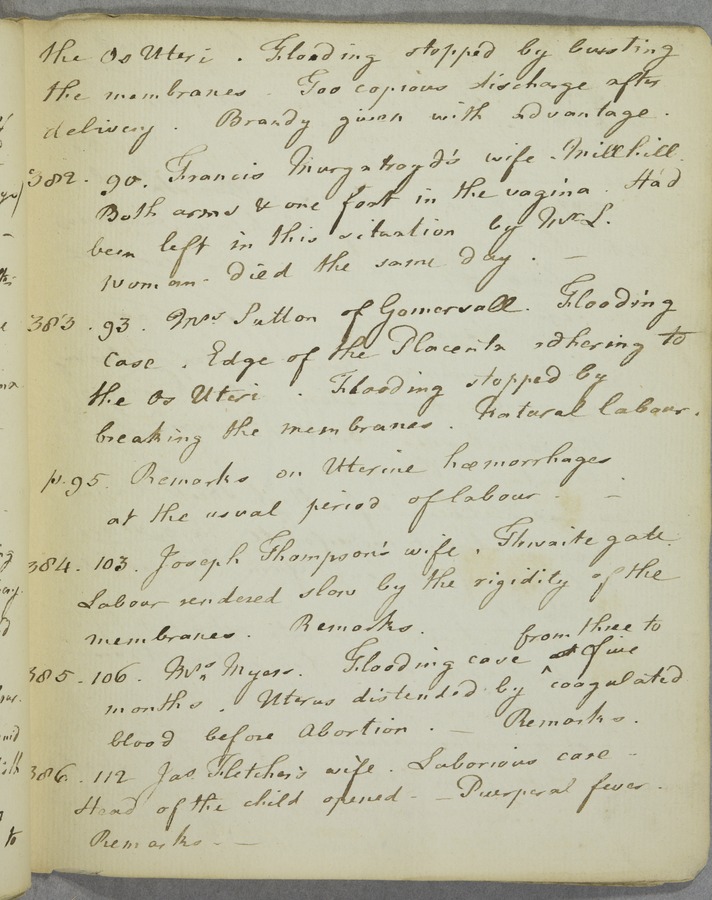 the Os Uteri . Flooding stopped by bursting
the membranes . Too copious discharge after
delivery . Brandy given with advantage .
382 . 90 . Francis Murgatroyd's wife . Mill hill .
Both arms & one foot in the vagina . Had
been left in this situation by Mr L.
Woman died the same day . —
383 . 93 . Mrs Sutton of Gomersall . Flooding
case . Edge of the Placenta adhering to
the Os Uteri . Flooding stopped by
breaking the membranes . Natural labour .
p. 95 . Remarks on Uterine hœmorrhages
at the usual period of labour . —
384 . 103 . Joseph Thompson's wife . Thwaite gate .
Labour rendered slow by the rigidity of the
membranes . Remarks .
from three to
385 . 106 . Mrs Myers . Flooding case ^ five
months . Uterus distended by coagulated
blood before Abortion . — Remarks .
386 . 112 Jas Fletcher's wife . Laborious case —
Head of the child opened — Puerperal fever .
Remarks — —